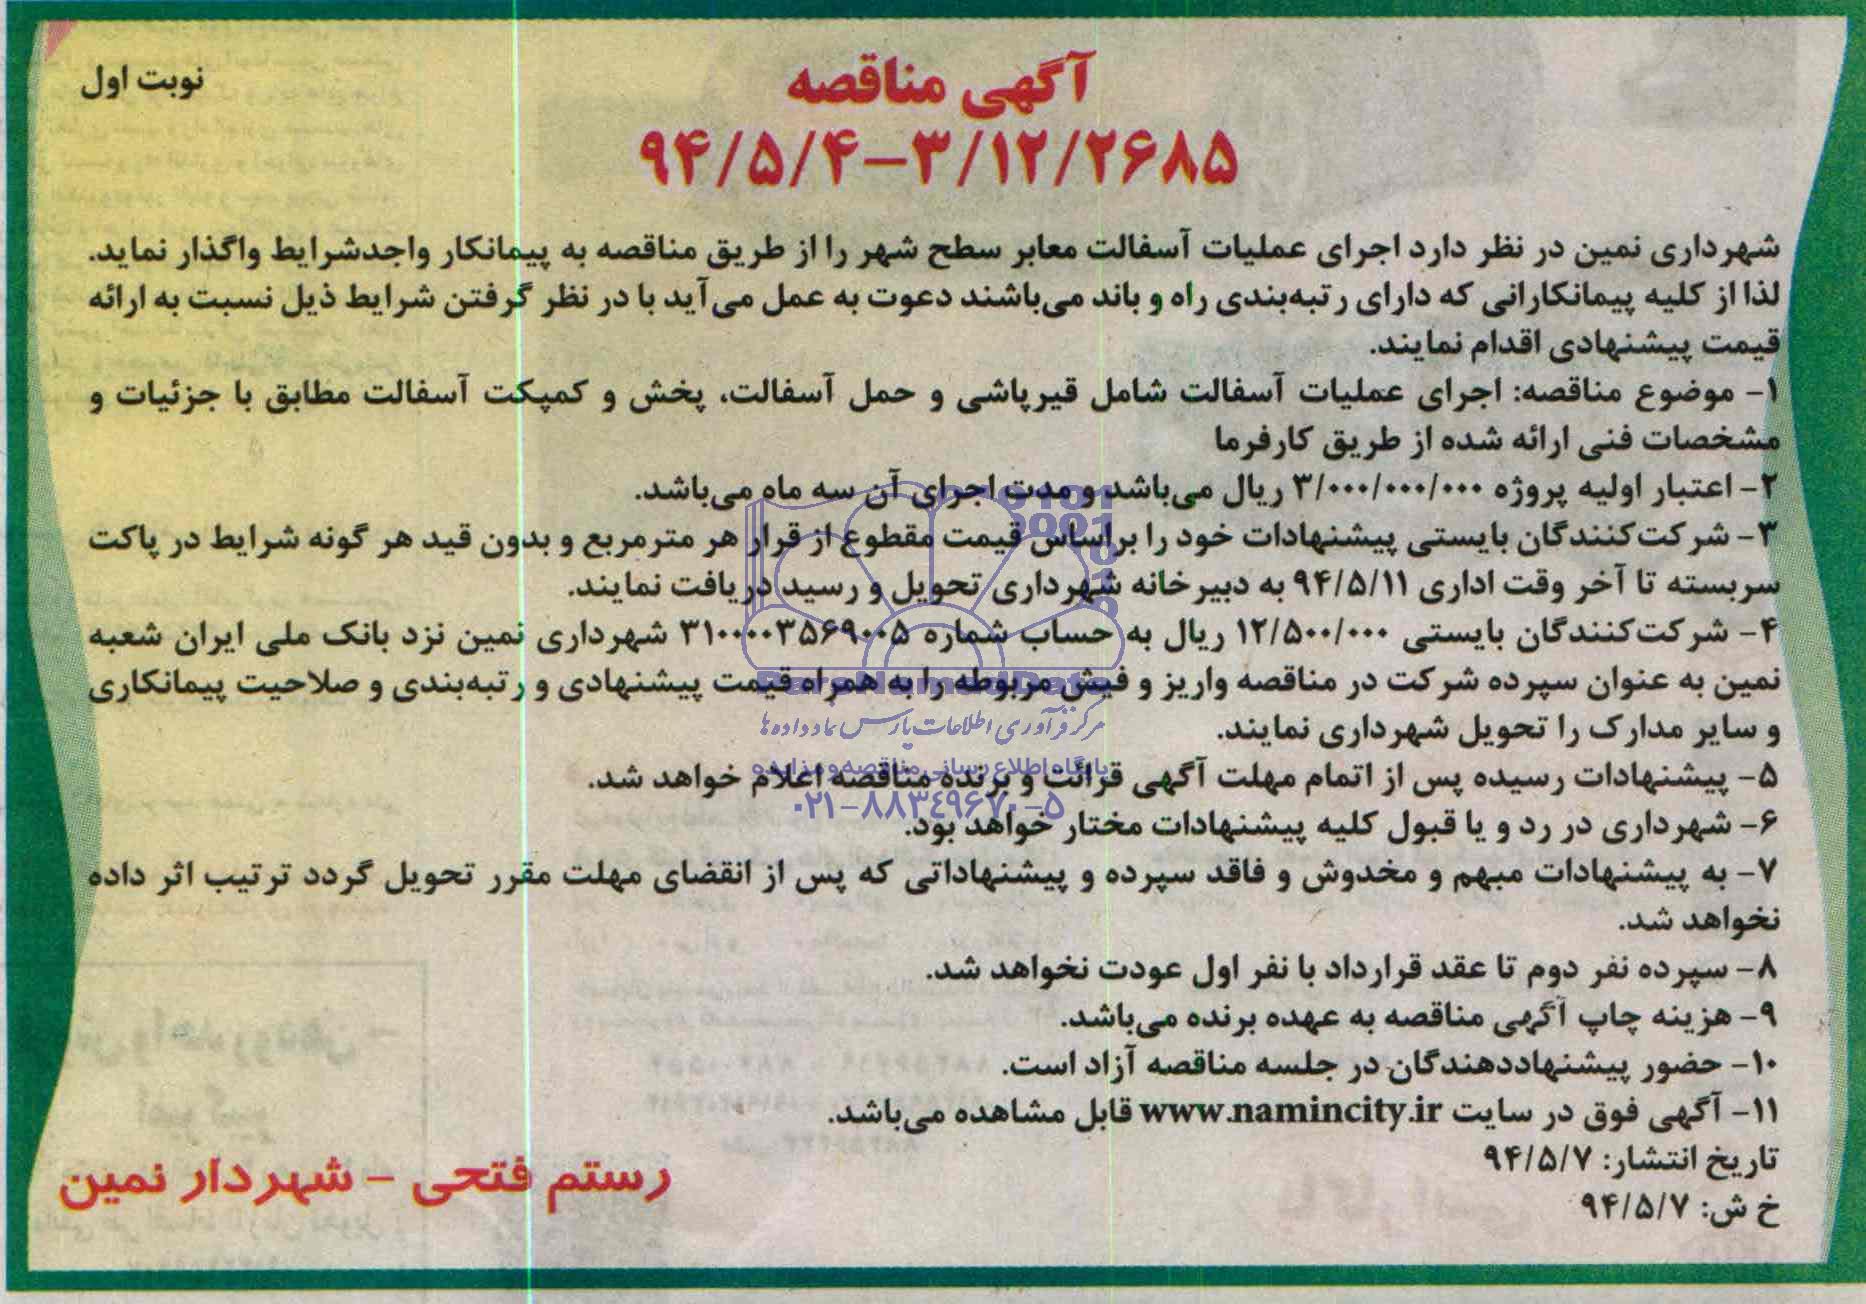 آگهی مناقصه
نوبت اول
۹۴/۵/۴-۳/۱۲/۲۶۸۵
شهرداری نمین در نظر دارد اجرای عملیات آسفالت معابر سطح شهر را از طریق مناقصه به پیمانکار واجدشرایط واگذار نماید.
لذا از کلیه پیمانکارانی که دارای رتبه‌بندی راه و باند می‌باشند دعوت به عمل می‌آید با در نظر گرفتن شرایط ذیل نسبت به ارائه
قیمت پیشنهادی اقدام نمایند.
۱- موضوع مناقصه: اجرای عملیات آسفالت شامل قیرپاشی و حمل آسفالت، پخش و کمپکت آسفالت مطابق با جزئیات و
مشخصات فنی ارائه شده از طریق کارفرما
۲- اعتبار اولیه پروژه ۳/۰۰۰/۰۰۰/۰۰۰ ریال می‌باشد و مدت اجرای آن سه ماه می‌باشد.
۳- شرکت‌کنندگان بایستی پیشنهادات خود را براساس قیمت مقطوع از قرار هر مترمربع و بدون قید هر گونه شرایط در پاکت
سربسته تا آخر وقت اداری ۹۴/۵/۱۱ به دبیرخانه شهرداری تحویل و رسید دریافت نمایند.
۴- شرکت‌کنندگان بایستی ۱۲/۵۰۰/۰۰۰ ریال به حساب شماره ۳۱۰۰۰۰۳۵۶۹۰۰۵ شهرداری نمین نزد بانک ملی ایران شعبه
نمین به عنوان سپرده شرکت در مناقصه واریز و فیش مربوطه را به همراه قیمت پیشنهادی و رتبه‌بندی و صلاحیت پیمانکاری
مرکز فرآوری اطلاعات پارس نماد داده‌ها
و سایر مدارک را تحویل شهرداری نمایند.
پایگاه اطلاع رسانی مناقصه و مزایده
۵- پیشنهادات رسیده پس از اتمام مهلت آگهی قرائت و برنده مناقصه اعلام خواهد شد.
۰۲۱-۸۸۳۴۹۶۷۰-۵
۶- شهرداری در رد و یا قبول کلیه پیشنهادات مختار خواهد بود.
۷- به پیشنهادات مبهم و مخدوش و فاقد سپرده و پیشنهاداتی که پس از انقضای مهلت مقرر تحویل گردد ترتیب اثر داده
نخواهد شد.
۸- سپرده نفر دوم تا عقد قرارداد با نفر اول عودت نخواهد شد.
۹- هزینه چاپ آگهی مناقصه به عهده برنده می‌باشد.
۱۰- حضور پیشنهاددهندگان در جلسه مناقصه آزاد است.
۱۱- آگهی فوق در سایت www.namincity.ir قابل مشاهده می‌باشد.
تاریخ انتشار: ۹۴/۵/۷
خ ش: ۹۴/۵/۷
رستم فتحی - شهردار نمین